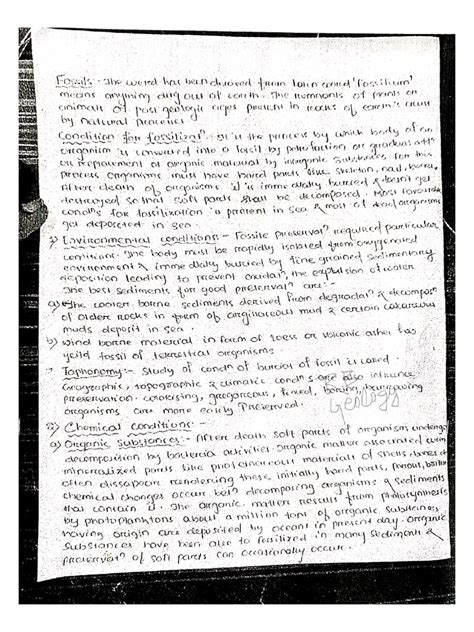 Fossils :- The word has been derived from latin word 'Fossilium'
means anything dug out of earth. The remnants of plants or
animals of past geologic ages present in rocks of earth's crust
by natural processes
Condition for fossilizaⁿ :- It is the process by which body of an
organism is converted into a fossil by petrifaction or gradual
or replacement of organic material by inorganic substances for this
process organisms must have hard parts like skeleton, nail, bones.
After death of organisms it is immediatly burried & doesn't get
destroyed so that soft parts shall be decomposed. Most favourable
condⁿs for fossilization is present in sea & most of dead organisms
get deposited in sea.
Environmental conditions :- Fossile preservaⁿ required particular
conditions. The body must be rapidly isolated from oxygenated
environment & immediatly burried by fine grained sedimentary
deposition leading to prevent oxidaⁿ, the expulsion of water
The best sediments for good preservaⁿ are :-
a) The water borne sediments derived from degradaⁿ & decomposⁿ
of older rocks in form of argillaceous mud & certain calcareous
muds deposit in sea.
b) wind borne material in form of loess or volcanic ashes has
yeild fossil of terrestrial organisms.
Taphonomy :- Study of condⁿ of burial of fossil is called.
Geographic, topographic & climatic condⁿs are also influence
preservation. gregarious, fixed, boring, burrowing
organisms are more easily preserved.
Geology
2) Chemical conditions :-
a) Organic substances :- After death soft parts of organism undergo
decomposition by bacteria activities. Organic matter associated with
mineralized parts like proteinaceous materials of shells, bones etc
often dissapear rendering these, initially hard parts, porous,
chemical changes occur betⁿ decomposing organisms & sediments
that contain it. The organic matter results from photosynthesis
by photoplanktons about a million tons of organic substances
having origin are deposited by ocean in present day. Organic
substances have been able to fossilized in many sediments &
preservaⁿ of soft parts can occasionally occur.